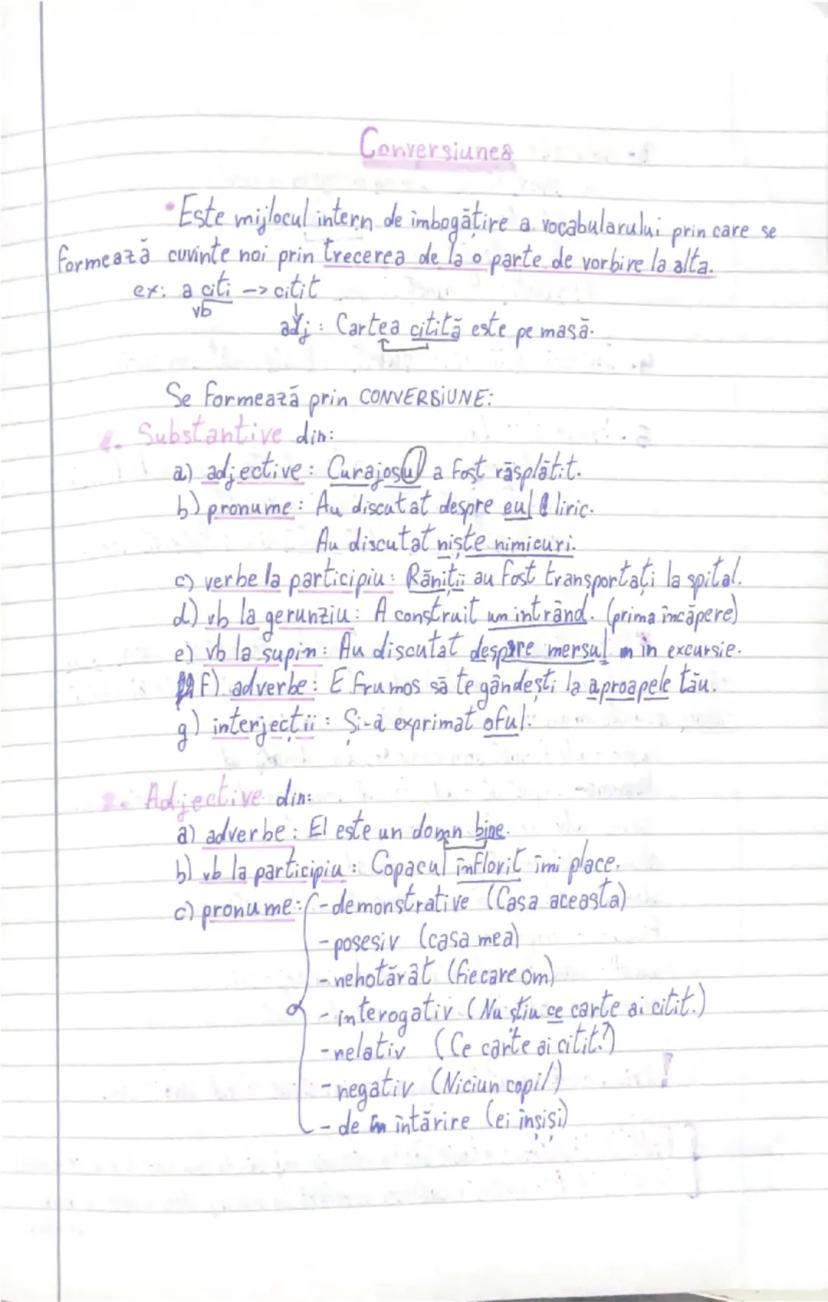 Conversiunea
• Este mijlocul intern de îmbogățire a vocabularului prin care se
formează cuvinte noi prin trecerea de la o parte de vorbire la alta.
ex: a citi -> citit
vb
adj: Cartea citită este pe masă.
Se formează prin CONVERSIUNE:
1. Substantive din:
a) adjective: Curajosul a fost răsplătit.
b) pronume: Au discutat despre eul liric.
Au discutat niște nimicuri.
c) verbe la participiu: Răniții au fost transportați la spital.
d) vb la gerunziu: A construit un intrând. (prima încăpere)
e) vb la supin: Au discutat despre mersul în excursie.
f) adverbe: E frumos să te gândești la aproapele tău.
g) interjecții: Și-a exprimat oful.
2. Adjective din:
a) adverbe: El este un domn bine.
b) vb la participiu: Copacul înflorit îmi place.
c) pronume: - demonstrative (Casa aceasta)
- posesiv (casa mea)
- nehotărât (fiecare om)
- interogativ (Nu știu ce carte ai citit.)
- relativ (Ce carte ai citit?)
- negativ (Niciun copil)
- de întărire (ei înșiși)